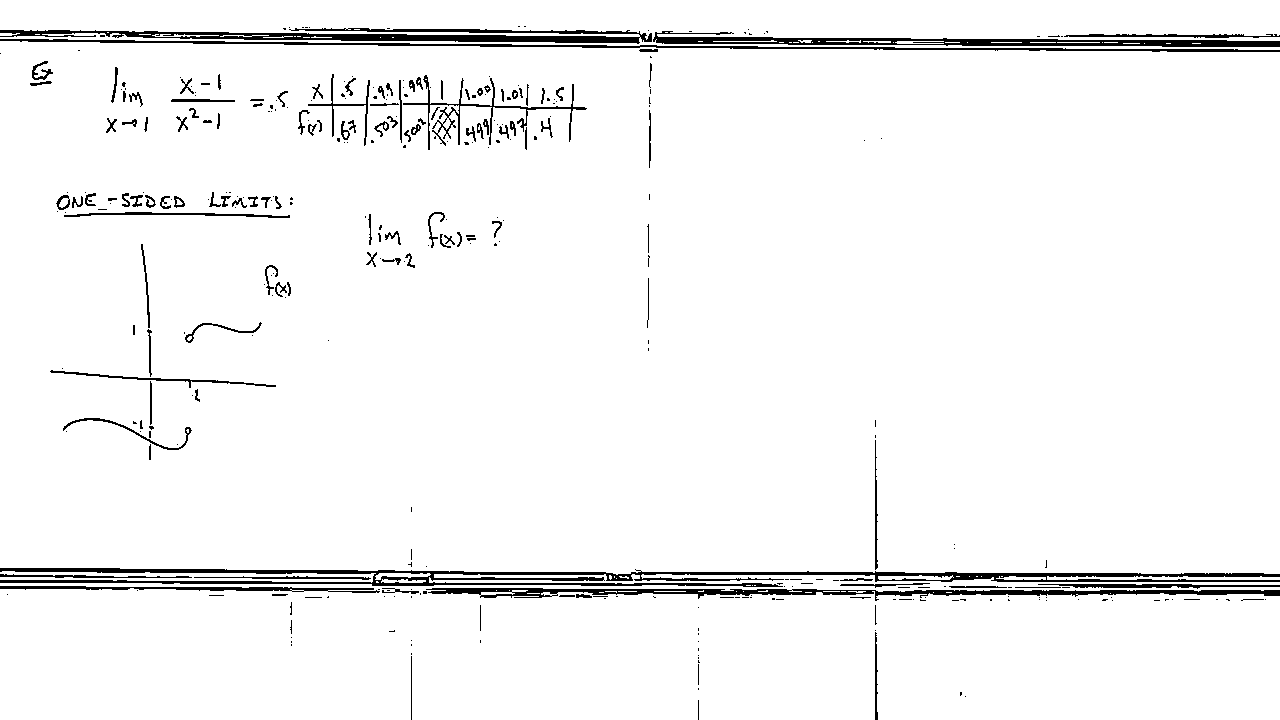 Ex
lim x→1 (x-1)/(x²-1) = .5
x | .5 | .99 | .999 | 1 | 1.001 | 1.01 | 1.5 |
f(x) | .67 | .503 | .5002 | | .499 | .497 | .4 |
ONE-SIDED LIMITS:
lim x→2 f(x) = ?
f(x)
1
2
-1